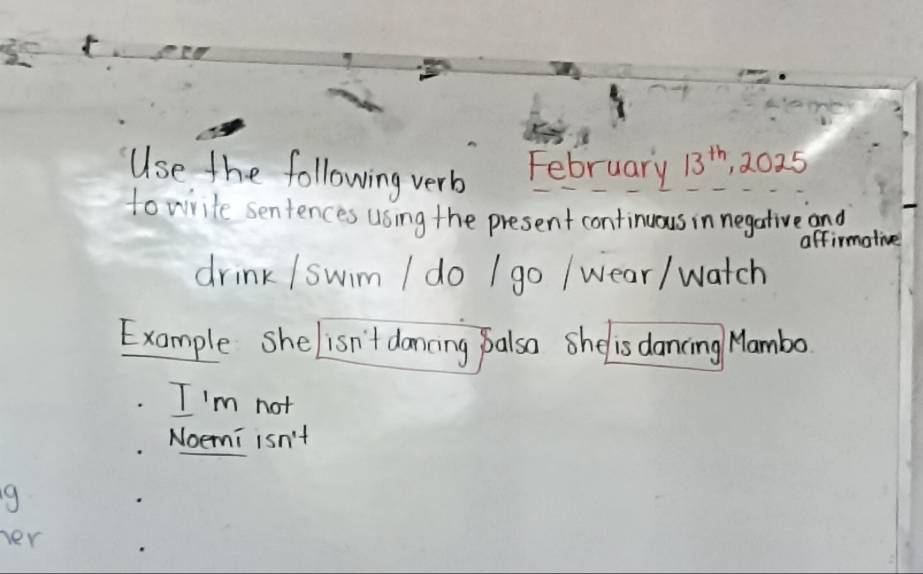 Use the following verb February 13th, 2025
to write sentences using the present continuous in negative and
affirmative
drink / swim / do / go / wear / watch
Example: She isn't dancing Salsa She is dancing Mambo.
. I'm not
. Noemí isn't
.
.
g
her